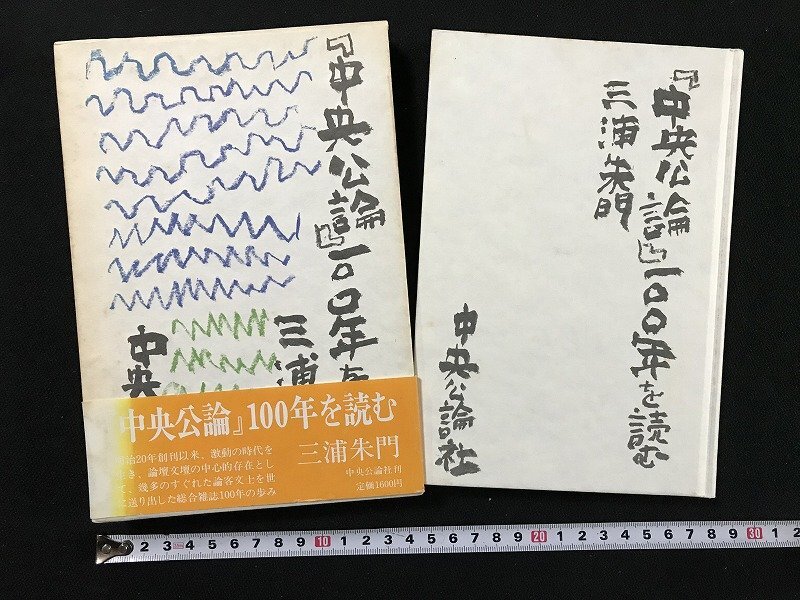 『中央公論』一〇〇年を
三浦
中央
『中央公論』100年を読む
明治20年創刊以来、激動の時代を
生き、論壇文壇の中心的存在とし
て、幾多のすぐれた論客文士を世
に送り出した総合雑誌100年の歩み
三浦朱門
中央公論社刊
定価1600円
『中央公論』一〇〇年を読む
三浦朱門
中央公論社
2 3 4 5 6 7 8 9 10 1 2 3 4 5 6 7 8 9 20 1 2 3 4 5 6 7 8 9 30 1